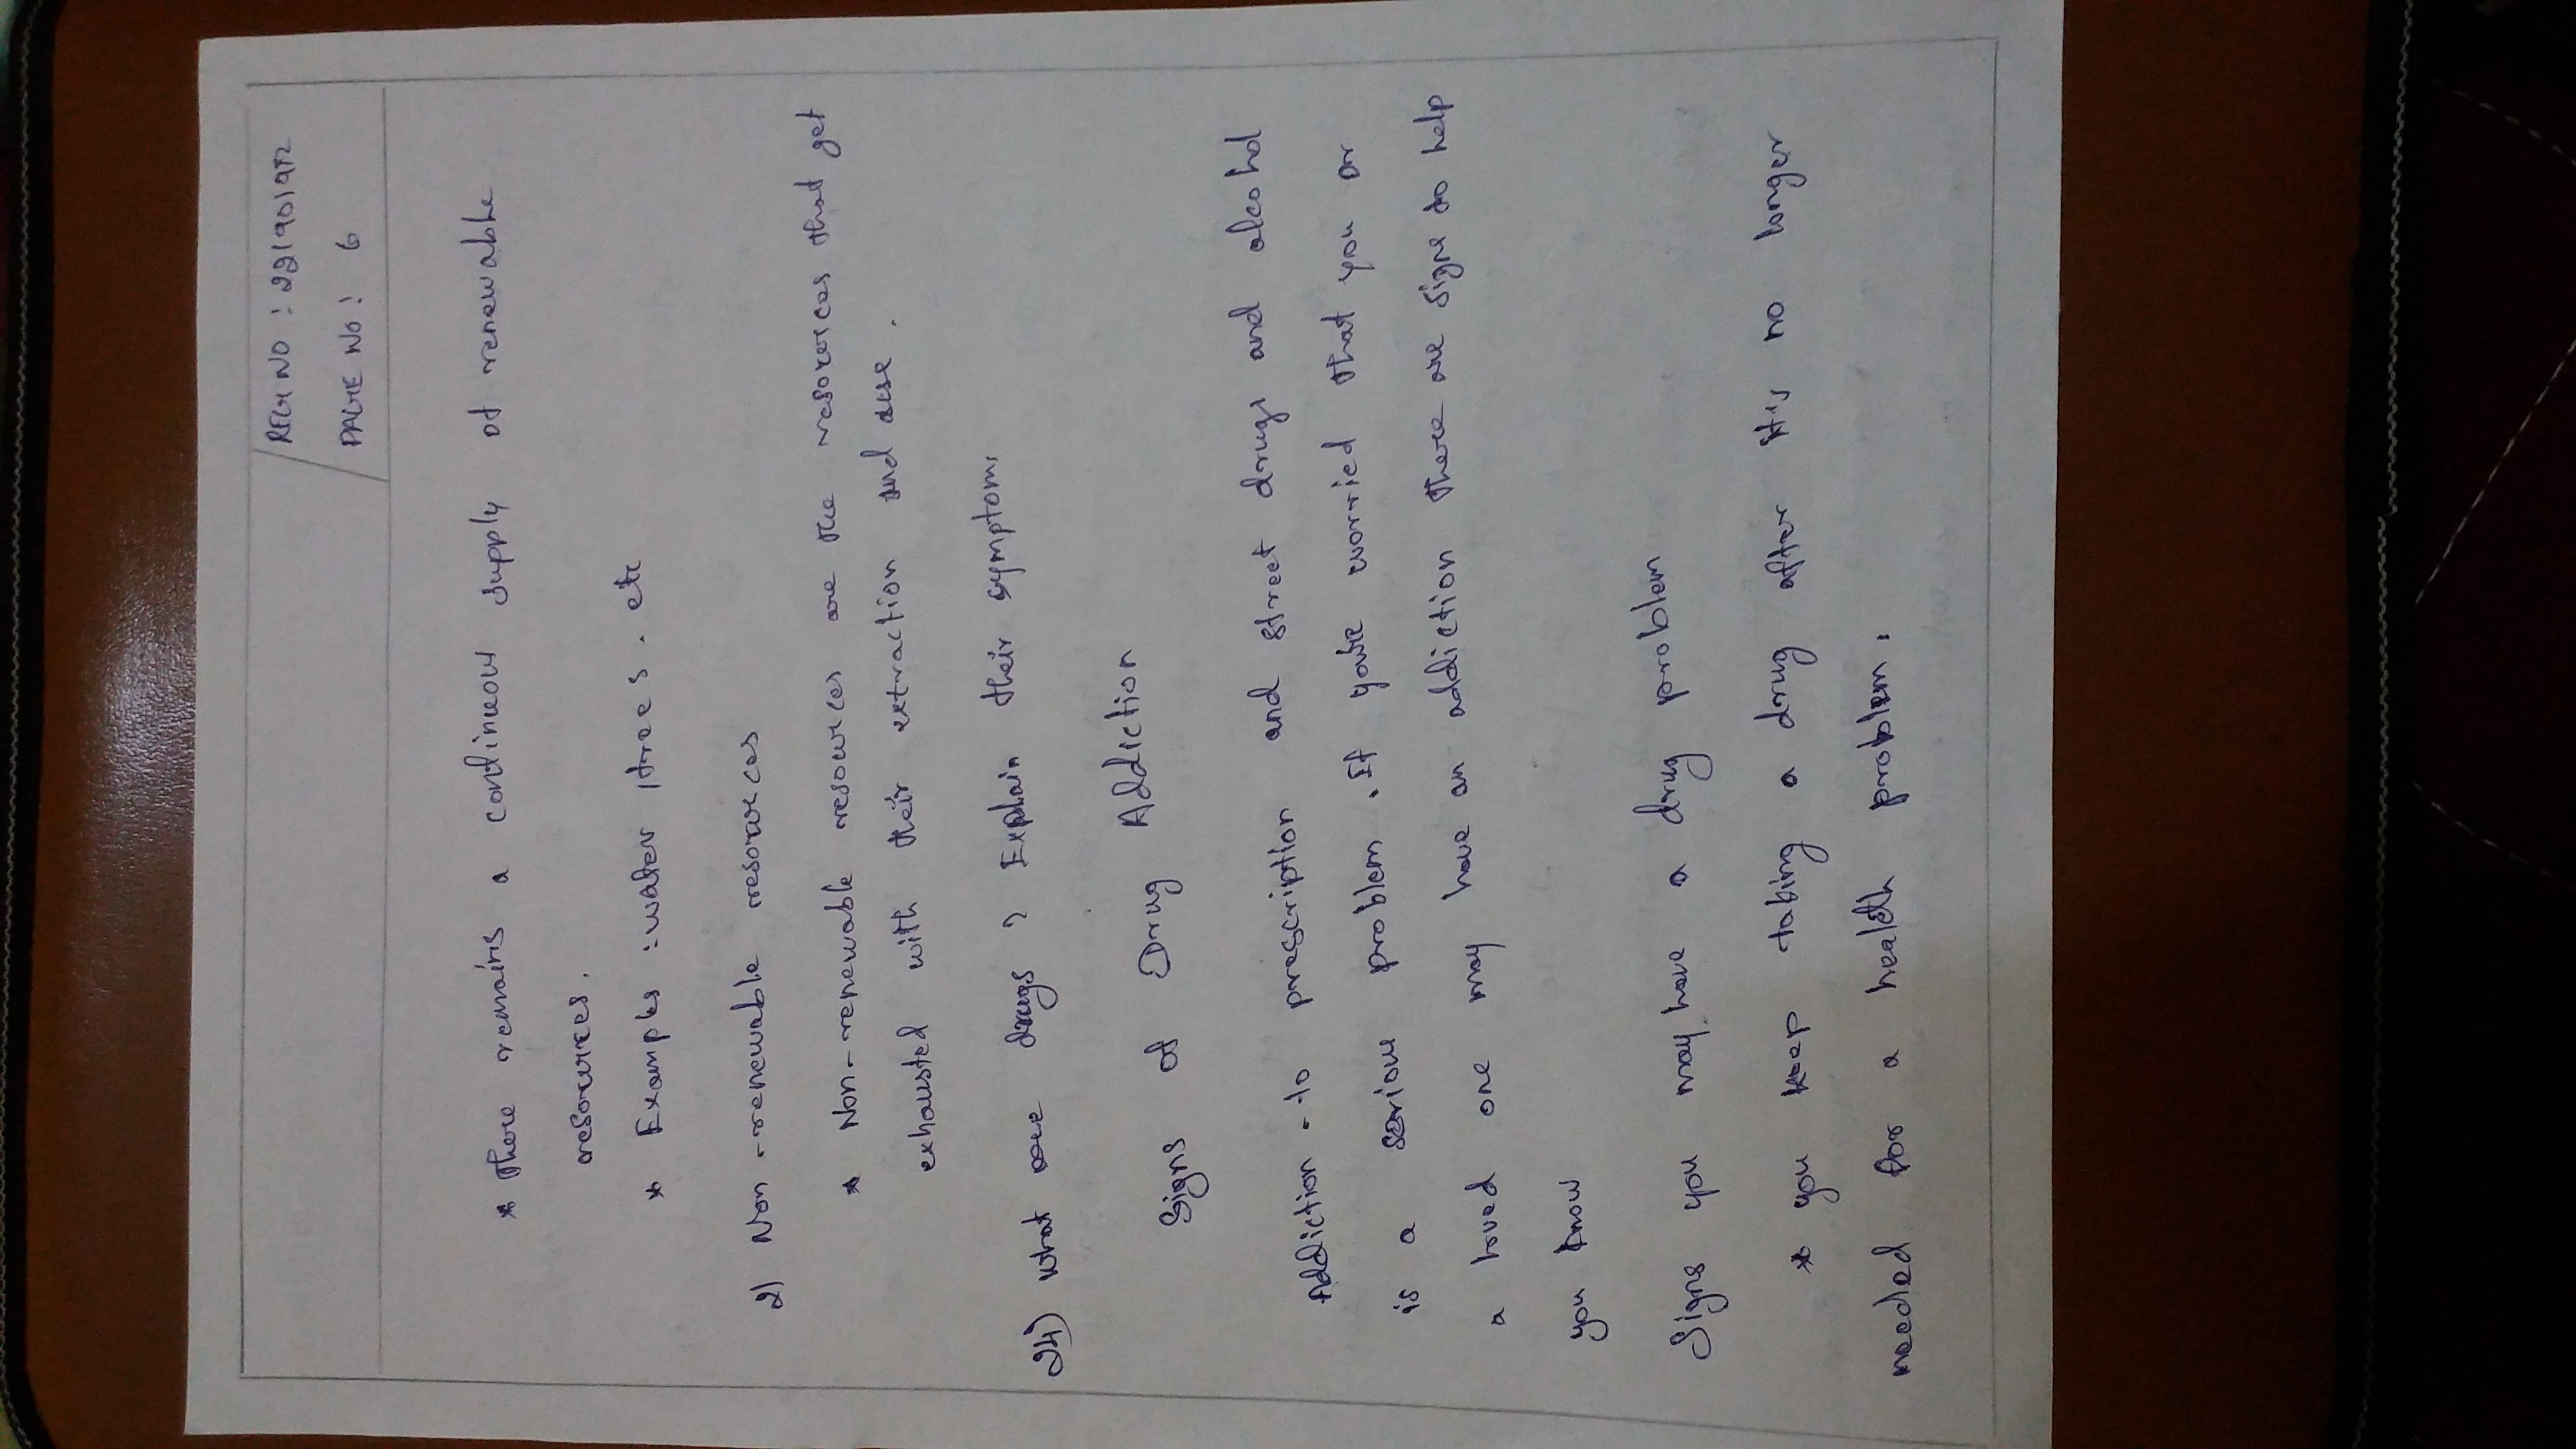 REG NO : 221901972
PAGE NO : 6
* There remains a continuous supply of renewable
resources.
* Examples : water , trees . etc
2) Non-renewable resources
* Non-renewable resources are the resources that get
exhausted with their extraction and use .
24) What are drugs ? Explain their symptoms
Signs of Drug Addiction
Addiction - to prescription and street drugs and alcohol
is a serious problem . If you're worried that you or
a loved one may have an addiction there are signs to help
you know
Signs you may have a drug problem
* you keep taking a drug after it's no longer
needed for a health problem .